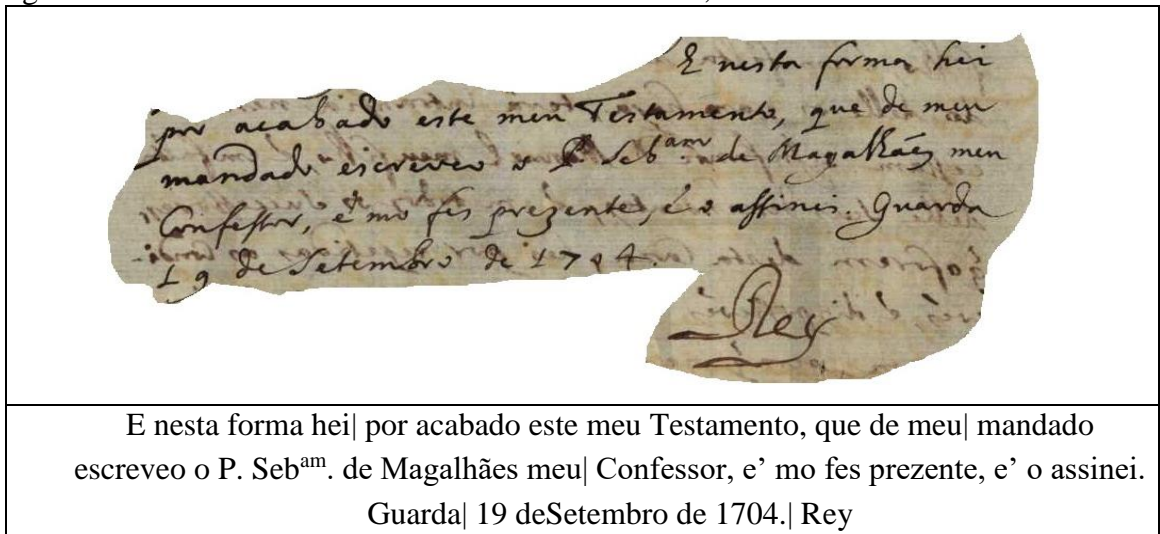 E nesta forma hei
por acabado este meu Testamento, que de meu
mandado escreveo o P. Seb^am. de Magalhães meu
Confessor, e' mo fes prezente, e' o assinei. Guarda
19 de Setembro de 1704
Rey
E nesta forma hei| por acabado este meu Testamento, que de meu| mandado
escreveo o P. Seb^am. de Magalhães meu| Confessor, e’ mo fes prezente, e’ o assinei.
Guarda| 19 deSetembro de 1704.| Rey